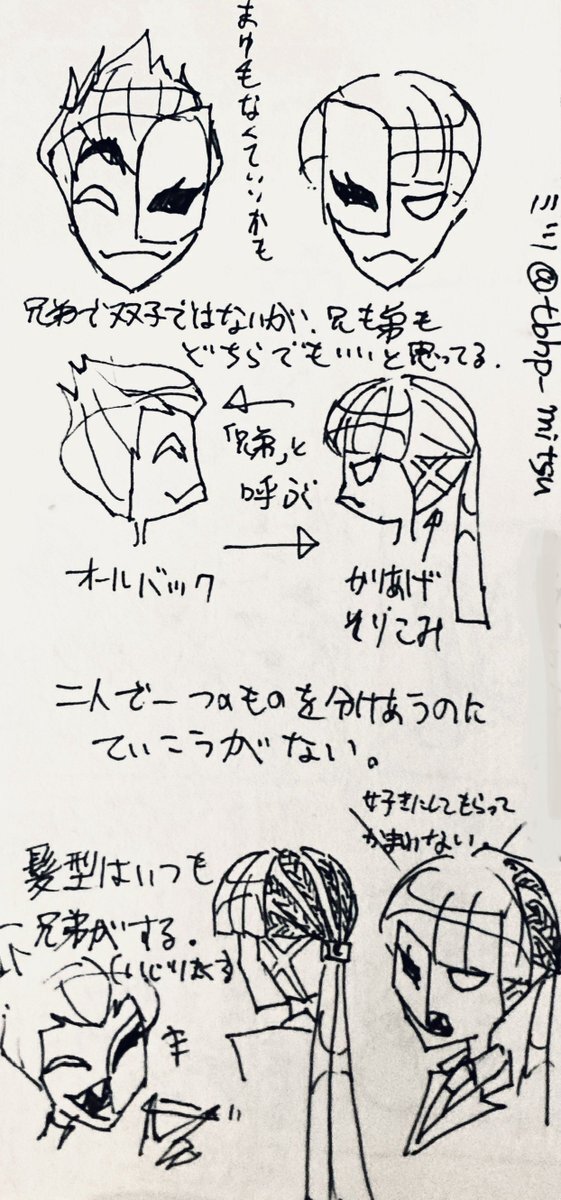 まゆもなくていいかも
ミツ@tbhp_mitsu
兄弟で双子ではないが、兄も弟も
どちらでもいいと思ってる.
「兄弟」と
呼ぶ
オールバック
かりあげ
そりこみ
二人で一つのものを分けあうのに
ていこうがない。
好きにしてもらって
かまわない.
髪型はいつも
兄弟がする.